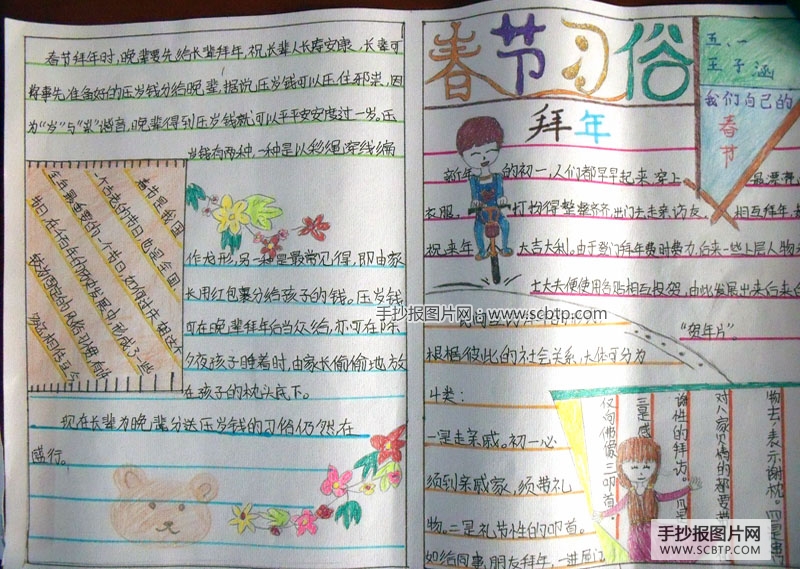 春节拜年时,晚辈要先给长辈拜年,祝长辈人长寿安康,长辈可
将事先准备好的压岁钱分给晚辈,据说压岁钱可以压住邪祟,因
为“岁”与“祟”谐音,晚辈得到压岁钱就可以平平安安度过一岁。压
岁钱有两种,一种是以彩绳穿线编
作龙形,另一种是最常见得,即由家
长用红包裹分给孩子的钱。压岁钱
可在晚辈拜年后当众给,亦可在除
夕夜孩子睡着时,由家长偷偷地放
在孩子的枕头底下。
现在长辈为晚辈分送压岁钱的习俗仍然在
盛行。
春节是我国
一个古老的节日,也是全国
全年最重要的一个节日,如何过庆
春节习俗
五、一
王子涵
我们自己的
春节
拜年
新年的初一,人们都早早起来,穿上最漂亮
衣服,打扮得整整齐齐,出门去走亲访友,相互拜年,
祝来年大吉大利。由于登门拜年费时费力,后来一些上层人物
士大夫便使用名贴相互投贺,由此发展出来后来
“贺年片”。
根据彼此的社会关系,大体可分为
4类:
一是走亲戚。初一必
须到亲戚家,须带礼
物。二是礼节性的叩首。
如给同事,朋友拜年,一进屋门
仅向佛像三叩首。
三是感
谢性的拜访。
物去,表示谢忱。四是串门
手抄报图片网:www.scbtp.com
手抄报图片网
WWW.SCBTP.COM